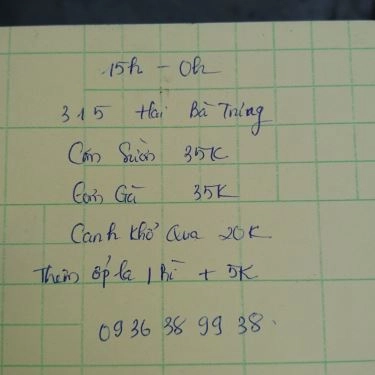 15h - 0h
315 Hai Bà Trưng
Cơm Sườn 35K
Cơm Gà 35K
Canh Khổ Qua 20K
Thêm ốp la 1 hì + 5K
0936 38 99 38.